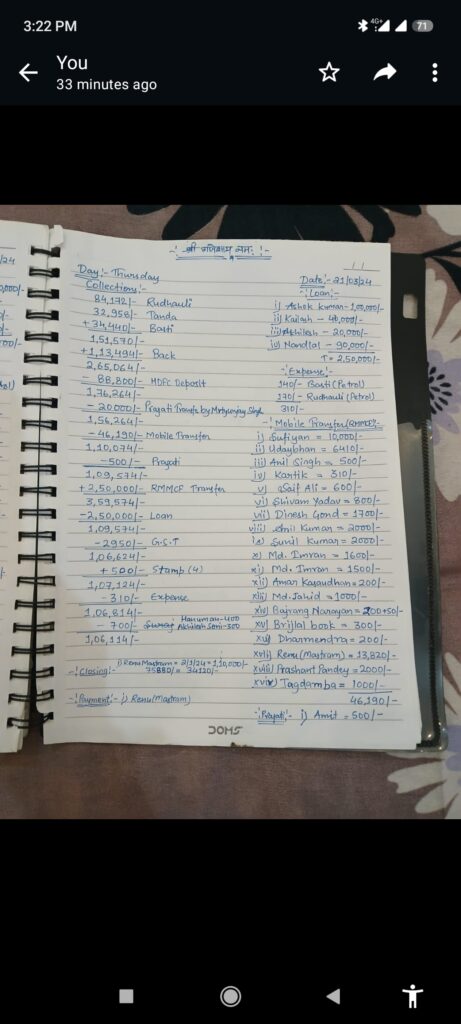 3:22 PM
4G+
71
You
33 minutes ago
Day:- Thursday
Date:- 21/03/24
Collection:-
84,172/- Rudhauli
32,958/- Tanda
+34,440/- Basti
1,51,570/-
+1,13,494/- Back
2,65,064/-
- 88,800/- HDFC Deposit
1,76,264/-
- 20000/- Prayati Transfer by Mrityunjay Singh
1,56,264/-
- 46,190/- Mobile Transfer
1,10,074/-
- 500/- Prayati
1,09,574/-
+2,50,000/- RMMCF Transfer
3,59,574/-
-2,50,000/- Loan
1,09,574/-
- 2950/- G.S.T
1,06,624/-
+ 500/- Stamp (4)
1,07,124/-
- 310/- Expense
1,06,814/-
- 700/- Hanuman-400
Akhilesh Soni-300
1,06,114/-
-:Closing:- i) Renu Mastram = 2/1/24 = 1,10,000/-
75880/- = 34120/-
-:Payment:- i) Renu (Mastram)
-:Loan:-
i) Ashok Kumar - 1,00,000/-
ii) Kailash - 40,000/-
iii) Akhilesh - 20,000/-
iv) Nandlal - 90,000/-
T = 2,50,000/-
-:Expense:-
140/- Basti (Petrol)
170/- Rudhauli (Petrol)
310/-
-:Mobile Transfer (RMMCF):-
i) Sufiyan = 10,000/-
ii) Udaybhan = 6410/-
iii) Anil Singh = 500/-
iv) Kartik = 310/-
v) Saif Ali = 600/-
vi) Shivam Yadav = 800/-
vii) Dinesh Gond = 1700/-
viii) Anil Kumar = 2000/-
ix) Sunil Kumar = 2000/-
x) Md. Imran = 1600/-
xi) Md. Imran = 1500/-
xii) Aman Kasaudhan = 200/-
xiii) Md. Jahid = 1000/-
xiv) Bajrang Narayan = 200+50/-
xv) Brijlal book = 300/-
xvi) Dharmendra = 200/-
xvii) Renu (Mastram) = 13,820/-
xviii) Prashant Pandey = 2000/-
xvix) Jagdamba = 1000/-
46,190/-
-:Prayati:- i) Amit = 500/-
DOMS